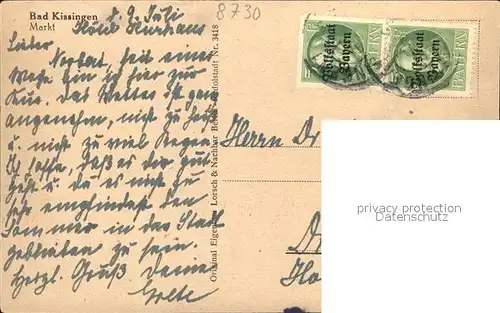 Bad Kissingen
Markt
d. 9. Juli
8730
Hotel Kurhaus
Lieber
Norbert, seit einer
Woche bin ich hier zur
Kur. Das Wetter ist ganz
angenehm, nicht zu heiß
u. nicht zu viel Regen.
Ich hoffe, daß es dir gut
geht u. du es nicht zu
sehr empfindest den
Sommer in der Stadt
geblieben zu sein.
Herzl. Gruß Deine
Grete
Original Eigen Lorsch & Nachbar Rudolstadt Nr. 3418
Volksstaat
Bayern
BAYERN
Volksstaat
Bayern
BAYERN
Herrn Dr
privacy protection
Datenschutz